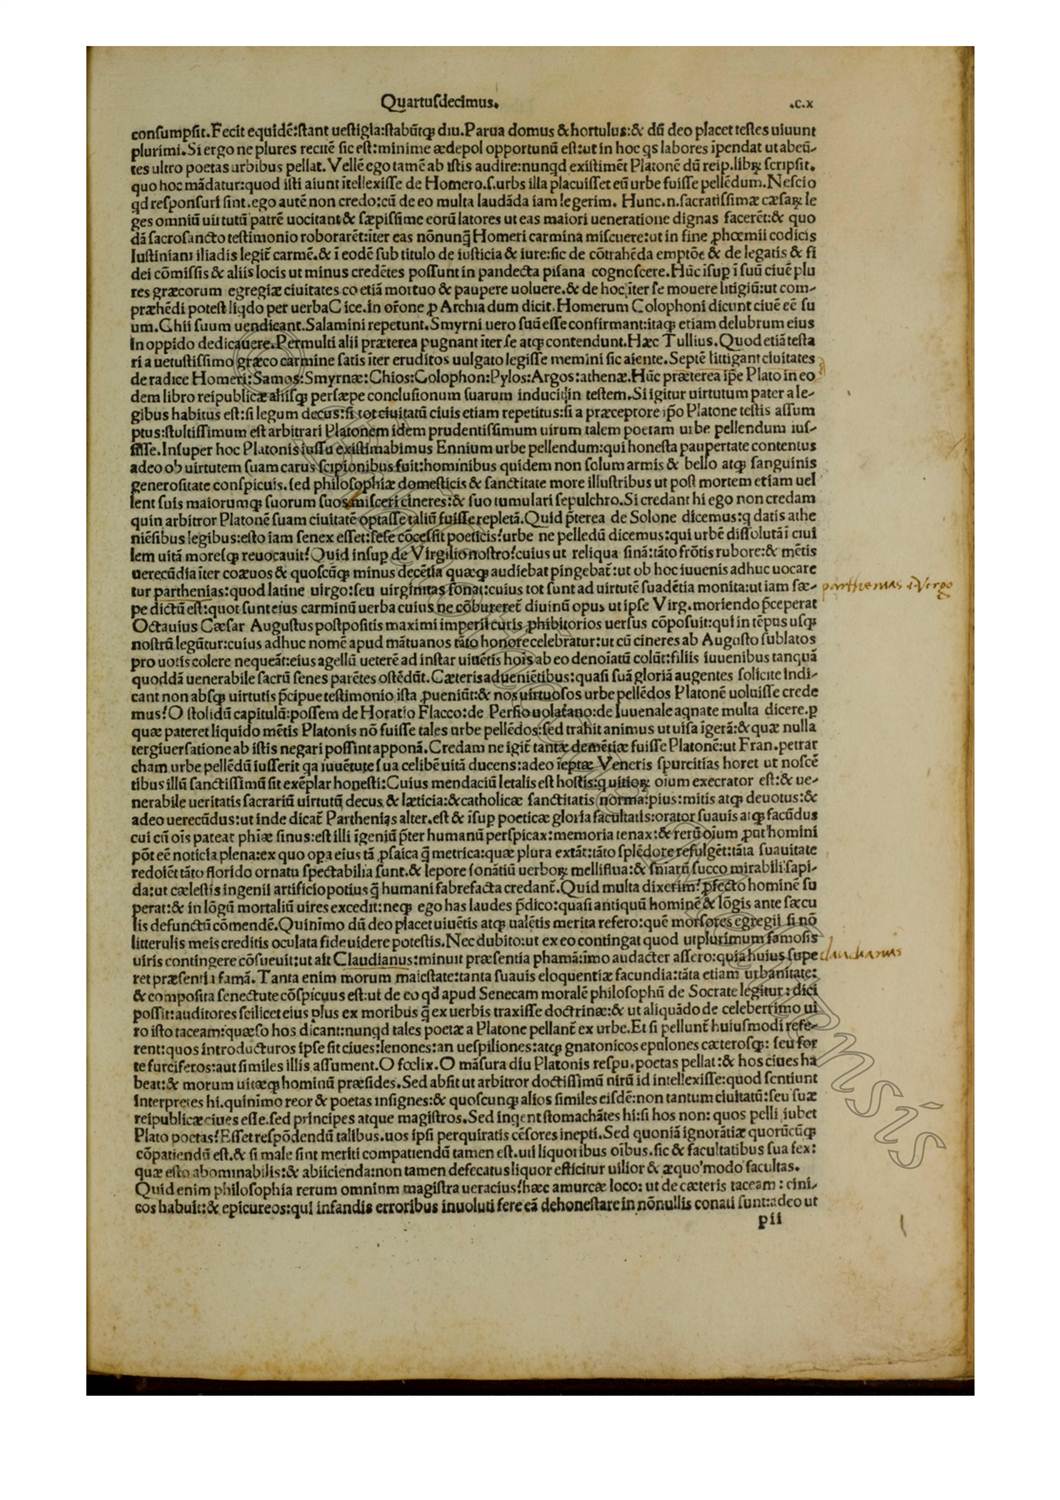 Quartusdecimus. .C.X
consumpsit. Fecit equidē: stant uestigia: stabūtq; diu. Parua domus & hortulus: & dū deo placet testes uiuunt
plurimi. Si ergo ne plures recitē sic est: minime ædepol opportunū est: ut in hoc qs labores īpendat ut abeū-
tes ultro poetas urbibus pellat. Vellē ego tamē ab istis audire: nunqd existimēt Platonē dū reip. libꝝ scripsit.
quo hoc mādatur: quod isti aiunt ītellexisse de Homero. s. urbs illa placuisset eū urbe fuisse pellēdum. Nescio
qd responsuri sint. ego autē non credo: cū de eo multa laudāda iam legerim. Hunc .n. sacratissimæ cæsaꝝ le
ges omniū uirtutū patrē uocitant & sæpissime eorū latores ut eas maiori ueneratione dignas facerēt: & quo
dā sacrosancto testimonio roborarēt: iter eas nōnunq̄ Homeri carmina miscuere: ut in fine ꝓhœmii codicis
Iustiniani iliadis legit̄ carmē. & ī eodē sub titulo de iusticia & iure: sic de cōtrahēda emptōe & de legatis & fi
dei cōmissis & aliis locis ut minus credētes possunt in pandecta pisana cognoscere. Hūc īsup ī suū ciuē plu
res græcorum egregiæ ciuitates co etiā mortuo & paupere uoluere. & de hoc īter se mouere litigiū: ut com-
præhēdi potest liqdo per uerba Cice. in or̄one ꝓ Archia dum dicit. Homerum Colophoni dicunt ciuē eē su
um. Chii suum uendicant. Salamini repetunt. Smyrni uero suū esse confirmant: itaq; etiam delubrum eius
in oppido dedicauere. Permulti alii præterea pugnant iter se atq; contendunt. Hæc Tullius. Quod etiā testa
ri a uetustissimo græco carmine satis iter eruditos uulgato legisse memini sic aiente. Septē litigant ciuitates
de radice Homeri: Samos: Smyrnæ: Chios: Colophon: Pylos: Argos: athenæ. Hūc præterea ip̄e Plato in eo
dem libro reipublicæ aliisq; persæpe conclusionum suarum inducit in testem. Si igitur uirtutum pater a le-
gibus habitus est: si legum decus: si tot ciuitatū ciuis etiam repetitus: si a præceptore ip̄o Platone testis assum
ptus: stultissimum est arbitrari Platonem idem prudentissimum uirum talem poetam urbe pellendum ius-
sisse. Insuper hoc Platonis iussu existimabimus Ennium urbe pellendum: qui honesta paupertate contentus
adeo ob uirtutem suam carus scipionibus fuit: hominibus quidem non solum armis & bello atq; sanguinis
generositate conspicuis. sed philosophiæ domesticis & sanctitate more illustribus ut post mortem etiam uel
lent suis maiorumq; suorum suos misceri cineres: & suo tumulari sepulchro. Si credant hi ego non credam
quin arbitror Platonē suam ciuitatē optasse taliū fuisse repletā. Quid p̄terea de Solone dicemus: q datis athe
niēsibus legibus: esto iam senex esset: sese cōcessit poeticis? urbe ne pelledū dicemus: qui urbē dissolutā ī ciui
lem uitā moresq; reuocauit? Quid insup de Virgilio nostro? cuius ut reliqua sinā: tāto frōtis rubore: & mētis
uerecūdia iter coæuos & quoscūq; minus decētia quæq; audiebat pingebat̄: ut ob hoc iuuenis adhuc uocare
tur parthenias: quod latine uirgo: seu uirginitas sonat: cuius tot sunt ad uirtutē suadētia monita: ut iam sæ- parthenias .i. Virgo
pe dictū est: quot sunt eius carminū uerba cuius ne cōbureret̄ diuinū opus ut ipse Virg. moriendo p̄ceperat
Octauius Cæsar Augustus postpositis maximi imperii curis ꝓhibitorios uersus cōposuit: qui in tēpus usq;
nostrū legūtur: cuius adhuc nomē apud mātuanos tāto honore celebratur: ut cū cineres ab Augusto sublatos
pro uotis colere nequeāt: eius agellū ueterē ad instar uiuētis hoīs ab eo denoīatū colūt: filiis iuuenibus tanquā
quoddā uenerabile sacrū senes parētes ostēdūt. Cæteris adueniētibus: quasi suā gloriā augentes solicite indi-
cant non absq; uirtutis p̄cipue testimonio ista ꝓueniūt: & nos uirtuosos urbe pellēdos Platonē uoluisse crede
mus? O stolidū capitulū: possem de Horatio Flacco: de Persio uolat̄ano: de Iuuenale aqnate multa dicere. ꝑ
quæ pateret liquido mētis Platonis nō fuisse tales urbe pellēdos: sed trahit animus ut uisa īgerā: & quæ nulla
tergiuersatione ab istis negari possint apponā. Credam ne igit̄ tantæ demētiæ fuisse Platonē: ut Fran. petrar
cham urbe pellēdū iusserit qa iuuētute sua celibē uitā ducens: adeo ineptæ Veneris spurcitias horet ut noscē
tibus illū sanctissimū sit exēplar honesti: Cuius mendaciū letalis est hostis: quitioꝝ oium execrator est: & ue-
nerabile ueritatis sacrariū uirtutū decus & læticia: & catholicæ sanctitatis norma: pius: mitis atq; deuotus: &
adeo uerecūdus: ut inde dicat̄ Parthenias alter. est & īsup poeticæ gloria facultatis: orator suauis atq; facūdus
cui cū oīs pateat phiæ sinus: est illi īgeniū p̄ter humanū perspicax: memoria tenax: & rerū oium ꝓut homini
pōt eē noticia plena: ex quo opa eius tā ꝓsaica q̄ metrica: quæ plura extāt: tāto splēdore refulgēt: tāta suauitate
redolēt tāto florido ornatu spectabilia sunt. & lepore sonātiū uerboꝝ melliflua: & sn̄iarū succo mirabili sapi-
da: ut cælestis ingenii artificio potius q̄ humani fabrefacta credant̄. Quid multa dixerim? ꝓfecto hominē su
perat: & in lōgū mortaliū uires excedit: neq; ego has laudes p̄dico: quasi antiquū hominē & lōgis ante sæcu
lis defunctū cōmendē. Quinimo dū deo placet uiuētis atq; ualētis merita refero: quē morsores egregii si nō
litterulis meis creditis oculata fide uidere potestis. Nec dubito: ut ex eo contingat quod ut plurimum famosis
uiris contingere cōsueuit: ut ait Claudianus: minuit præsentia phamā: imo audacter assero: quia huius supe Claudianus
ret præsentiī famā. Tanta enim morum maiestate: tanta suauis eloquentiæ facundia: tāta etiam urbanitate:
& composita senectute cōspicuus est: ut de eo qd apud Senecam moralē philosophū de Socrate legitur: dici
possit: auditores scilicet eius plus ex moribus q̄ ex uerbis traxisse doctrinæ: & ut aliquādo de celeberrimo ui
ro isto taceam: quæso hos dicant: nunqd tales poetæ a Platone pellant̄ ex urbe. Et si pellunt̄ huiusmodi refe-
rent: quos introducturos ipse sit ciues: lenones: an uespiliones: atq; gnatonicos epulones cæterosq;: seu for
te furciferos: aut similes illis assument. O fœlix. O māsura diu Platonis respu. poetas pellat: & hos ciues ha
beat: & morum uitæq; hominū præsides. Sed absit ut arbitror doctissimū uirū id intellexisse: quod sentiunt
interpretes hi. quinimo reor & poetas insignes: & quoscunq; alios similes eisdē: non tantum ciuitatū: seu suæ
reipublicæ ciues esse. sed principes atque magistros. Sed inqent stomachātes hi: si hos non: quos pelli iubet
Plato poetas? Esset respōdendū talibus. uos ipsi perquiratis cēsores inepti. Sed quoniā ignorātiæ quorūcūq;
cōpatiendū est. & si male sint meriti compatiendū tamen est. uti liquoribus oībus. sic & facultatibus sua fex:
quæ esto abominabilis: & abiicienda: non tamen defecatus liquor efficitur uilior & æquo modo facultas.
Quid enim philosophia rerum omnium magistra ueracius? hæc amurcæ loco: ut de cæteris taceam: cini-
cos habuit: & epicureos: qui infandis erroribus inuoluti fere eā dehonestare in nōnullis conati sunt: adeo ut
pii